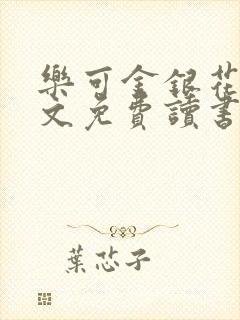 樂可金銀花
文免費讀書
葉芯子